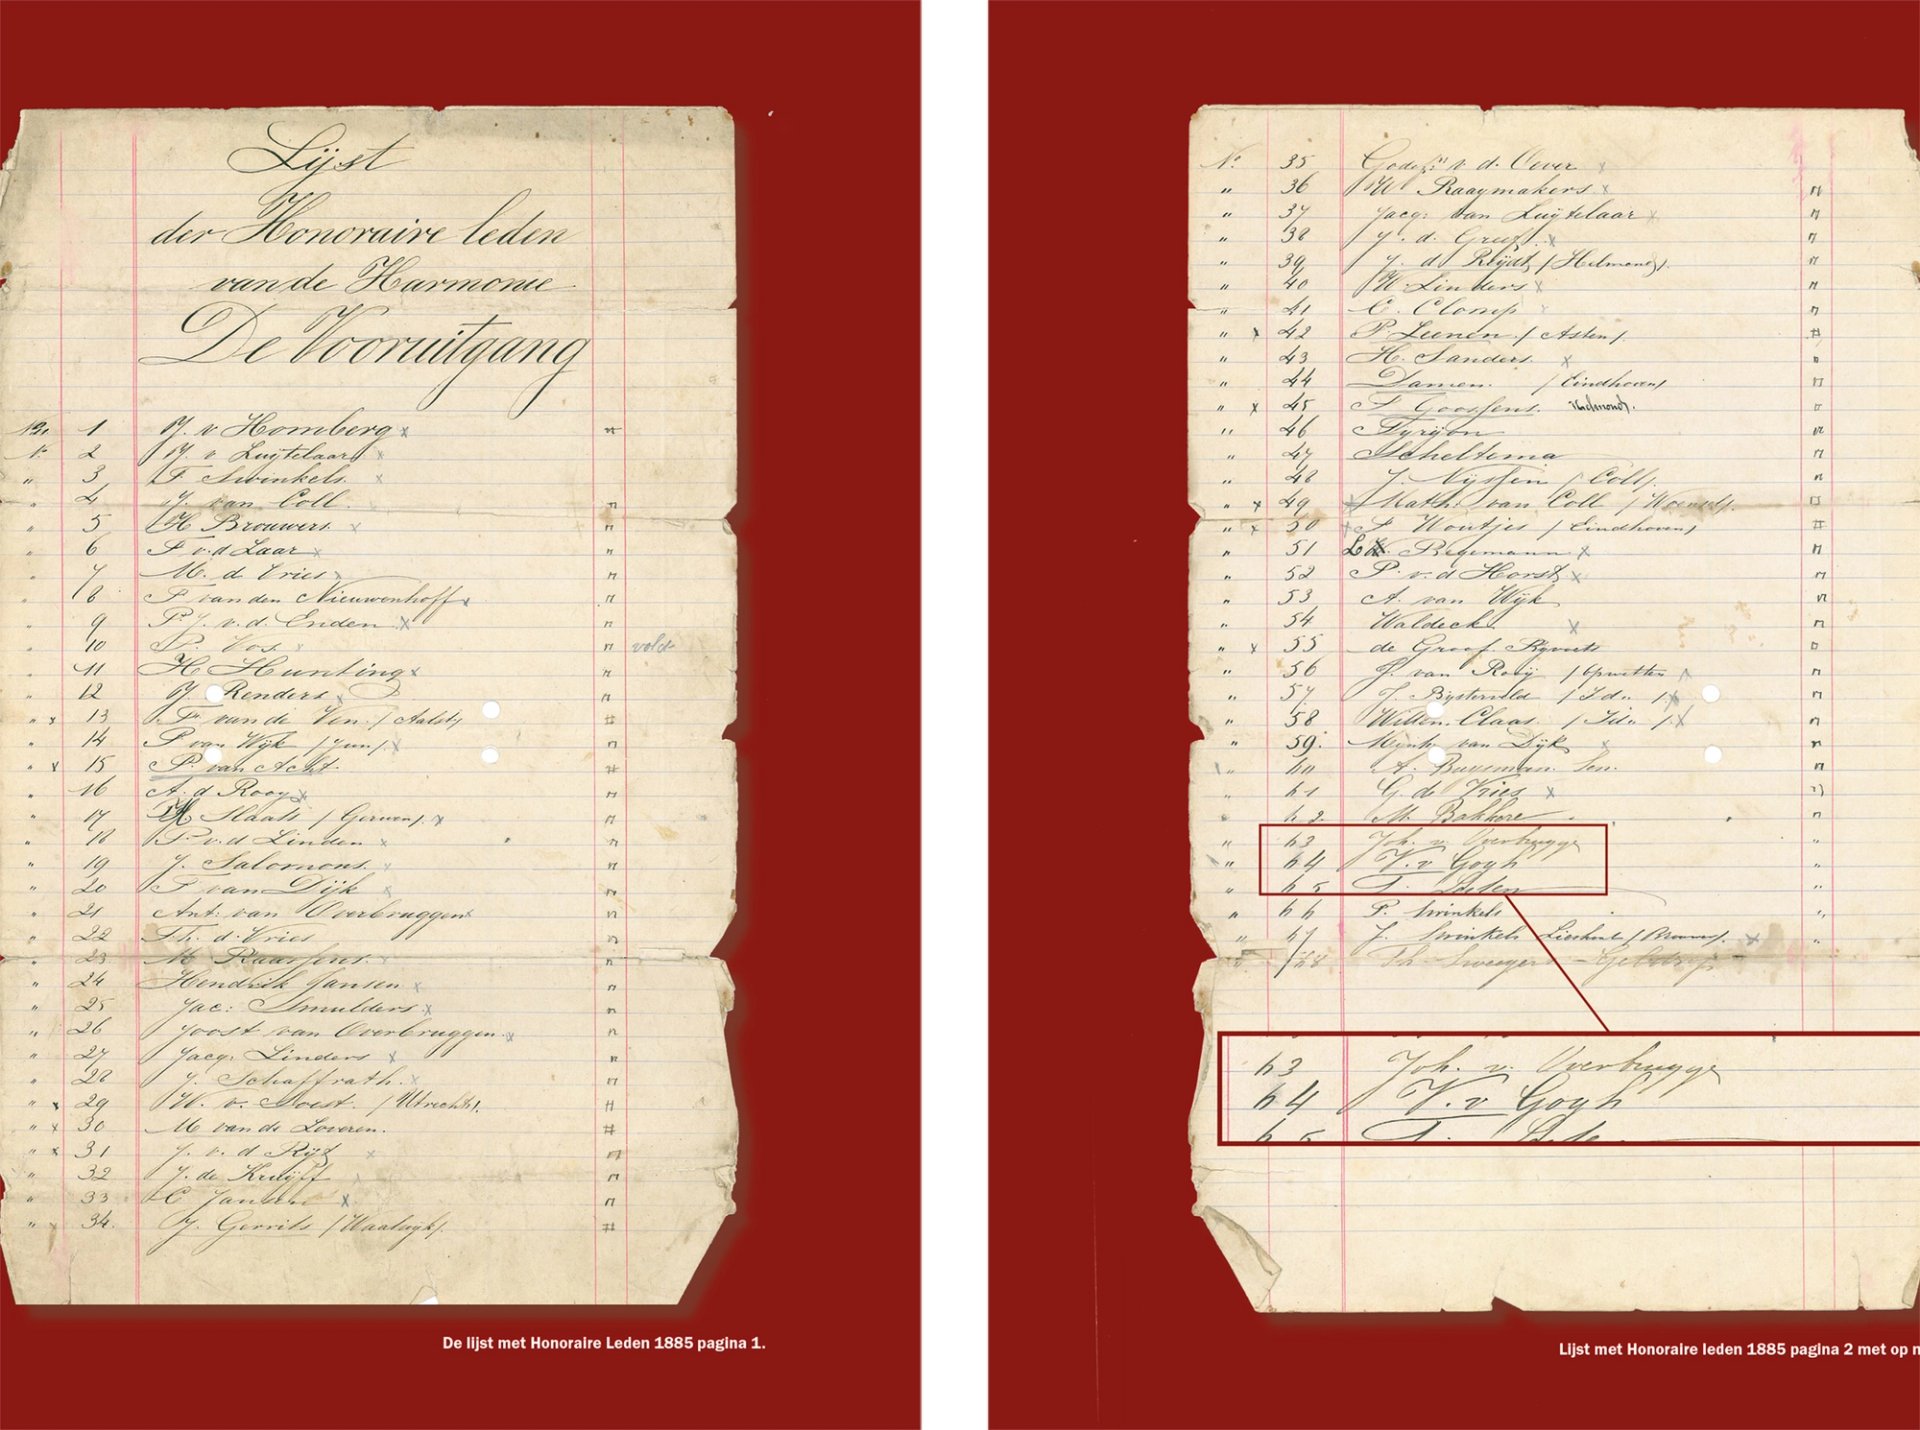 Lijst
der Honoraire leden
van de Harmonie
De Vooruitgang
No. 1 v Homberg x
N. 2 v Luijtelaar x
" 3 F Swinkels. x
" 4 J. van Coll. "
" 5 H Brouwers x "
" 6 F v.d Laar x "
" 7 M. d Vries x "
" 8 F van den Nieuwenhoff x "
" 9 P.J. v. d. Enden x "
" 10 P. Vos x " voldt
" 11 H Hunting x "
" 12 Renders x "
" x 13 F van de Ven / Aalst / #
" 14 P van Wijk / Jun /. x "
" x 15 P. van Acht #
" 16 A. d Rooy x "
" 17 Staals / Gerwen /. x "
" 18 P. v.d Linden x "
" 19 J. Salomons. x "
" 20 F van Dijk x "
" 21 Ant: van Overbruggen x "
" 22 Th. d. Vries "
" 23 M Raassens. x "
" 24 Hendrik Jansen x "
" 25 Jac: Smulders x "
" 26 Joost van Overbruggen x "
" 27 Jacq: Linders x "
" 28 J. Schaffrath. x "
" x 29 W. v. Soest. / Utrecht /. #
" x 30 M van de Loveren. #
" x 31 J. v. d Rijt x "
" 32 J. de Kruijff "
" 33 C Jansen x "
" x 34. J. Gerrits / Waalwijk /. #
De lijst met Honoraire Leden 1885 pagina 1.
No. 35 v. d. Oever x
" 36 W Raaymakers x "
" 37 Jacq: van Luijtelaar x "
" 38 J. d. Greef. x "
" 39 J. d Reijdt / Helmond /. "
" 40 W. Linders x "
" 41 C. Clomp x "
" x 42 P. Leenen / Asten /. #
" 43 H. Sanders. x "
" 44 Damen. / Eindhoven / "
" x 45 F Goossens. Helmond.
" 46 "
" 47 Scheltema "
" 48 J. Nijssen / Coll /. "
" x 49 x Math: van Coll / Woensel /.
" x 50 x Woutjes / Eindhoven / #
" 51 Begemann x "
" 52 P. v. d Horst x "
" 53 A. van Wijk "
" 54 Waldeck x "
" x 55 de Groof
" 56 J. van Rooij / Opwetten "
" 57 J. Bijsterveld / Id. /. x "
" 58 Willem Claas. / Id. /. x "
" 59. van Dijk x "
" 60 A. Buysman Sen. "
" 61 G. de Vries x "
" 62 M. Bakkere "
" 63 Joh. v. Overbrugge "
" 64 V. v Gogh "
" 65 "
" 66 P. Swinkels "
" 67 J. Swinkels Lieshout / Brouwer /. x "
68 Th Sweegers - Geldrop
63 Joh. v. Overbrugge
64 V. v Gogh
65
Lijst met Honoraire leden 1885 pagina 2 met op n